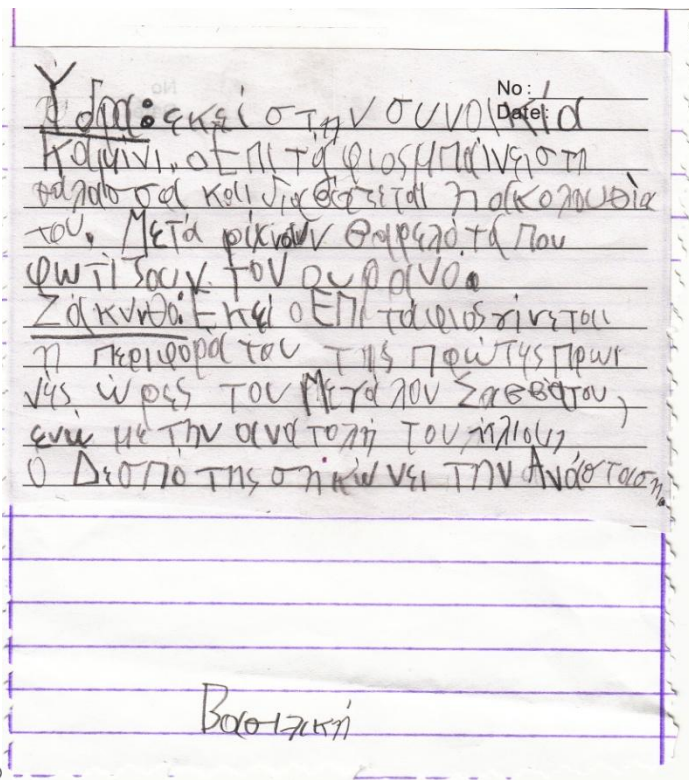 No: 1
Date:
Ύδρα: εκεί στην συνοικία
Καμίνι.. ο Επιτάφιος μπαίνει στη
θάλασσα και διαβάζεται η ακολουθία
του. Μετά ρίχνουν βαρελότα που
φωτίζουν τον ουρανό.
Ζάκυνθο: Εκεί ο Επιτάφιος γίνεται
η περιφορά του της πρώτης πρωι
νής ώρες του Μεγάλου Σαββάτου,
ενώ με την ανατολή του ηλίου,
ο Δεσπότης σηκώνει την Ανάσταση.
Βασιλική